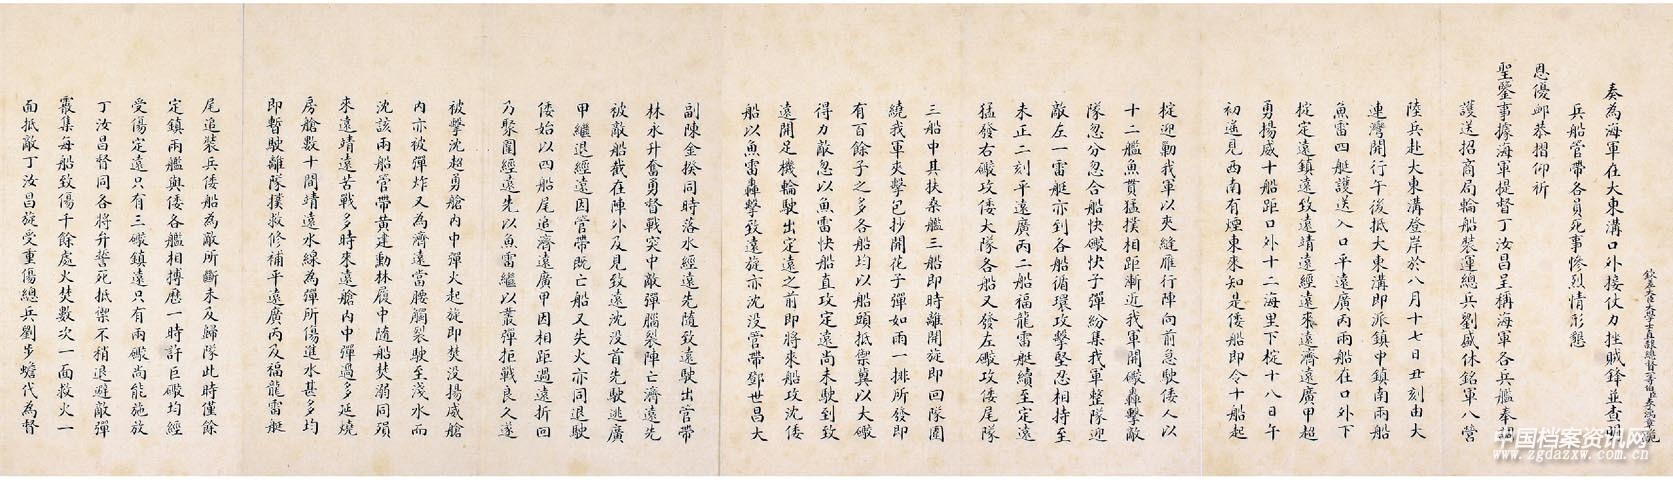 奏為海軍在大東溝口外接仗力挫賊鋒並查明
兵船管帶各員死事慘烈情形懇
恩優卹恭摺仰祈
聖鑒事據海軍提督丁汝昌呈稱海軍各兵艦奉
護送招商局輪船裝運總兵劉盛休銘軍八營
陸兵赴大東溝登岸於八月十七日丑刻由大
連灣開行午後抵大東溝即派鎮中鎮南兩船
魚雷四艇護送入口平遠廣丙兩船在口外下
椗定遠鎮遠致遠靖遠經遠來遠濟遠廣甲超
勇揚威十船距口外十二海里下椗十八日午
初遙見西南有煙東來知是倭船即令十船起
椗迎勦我軍以夾縫雁行陣向前急駛倭人以
十二艦魚貫猛撲相距漸近我軍開礮轟擊敵
隊忽分忽合船快礮快子彈紛集我軍整隊迎
敵左一雷艇亦到各船循環攻擊堅忍相持至
未正二刻平遠廣丙二船福龍雷艇續至定遠
猛發右礮攻倭大隊各船又發左礮攻倭尾隊
三船中其扶桑艦三船即時離開旋即回隊圍
繞我軍夾擊包抄開花子彈如雨一排所發即
有百餘子之多各船均以船頭抵禦冀以大礮
得力敵忽以魚雷快船直攻定遠尚未駛到致
遠開足機輪駛出定遠之前即將來船攻沈倭
船以魚雷轟擊致遠旋亦沈沒管帶鄧世昌大
副陳金揆同時落水經遠先隨致遠駛出管帶
林永升奮勇督戰突中敵彈腦裂陣亡濟遠先
被敵船截在陣外及見致遠沈沒首先駛逃廣
甲繼退經遠因管帶既亡船又失火亦同退駛
倭始以四船尾追濟遠廣甲因相距過遠折回
乃聚圍經遠先以魚雷繼以叢彈拒戰良久遂
被擊沈超勇艙內中彈火起旋即焚沒揚威艙
內亦被彈炸又為濟遠當腰觸裂駛至淺水而
沈該兩船管帶黃建勳林履中隨船焚溺同殞
來遠靖遠苦戰多時來遠艙內中彈過多延燒
房艙數十間靖遠水線為彈所傷進水甚多均
即暫駛離隊撲救修補平遠廣丙及福龍雷艇
尾追裝兵倭船為敵所斷未及歸隊此時僅餘
定鎮兩艦與倭各艦相搏歷一時許巨礮均經
受傷定遠只有三礮鎮遠只有兩礮尚能施放
丁汝昌督同各將弁誓死抵禦不稍退避敵彈
霰集每船致傷千餘處火焚數次一面救火一
面抵敵丁汝昌旋受重傷總兵劉步蟾代為督
中国档案资讯网
www.zgdazxw.com.cn